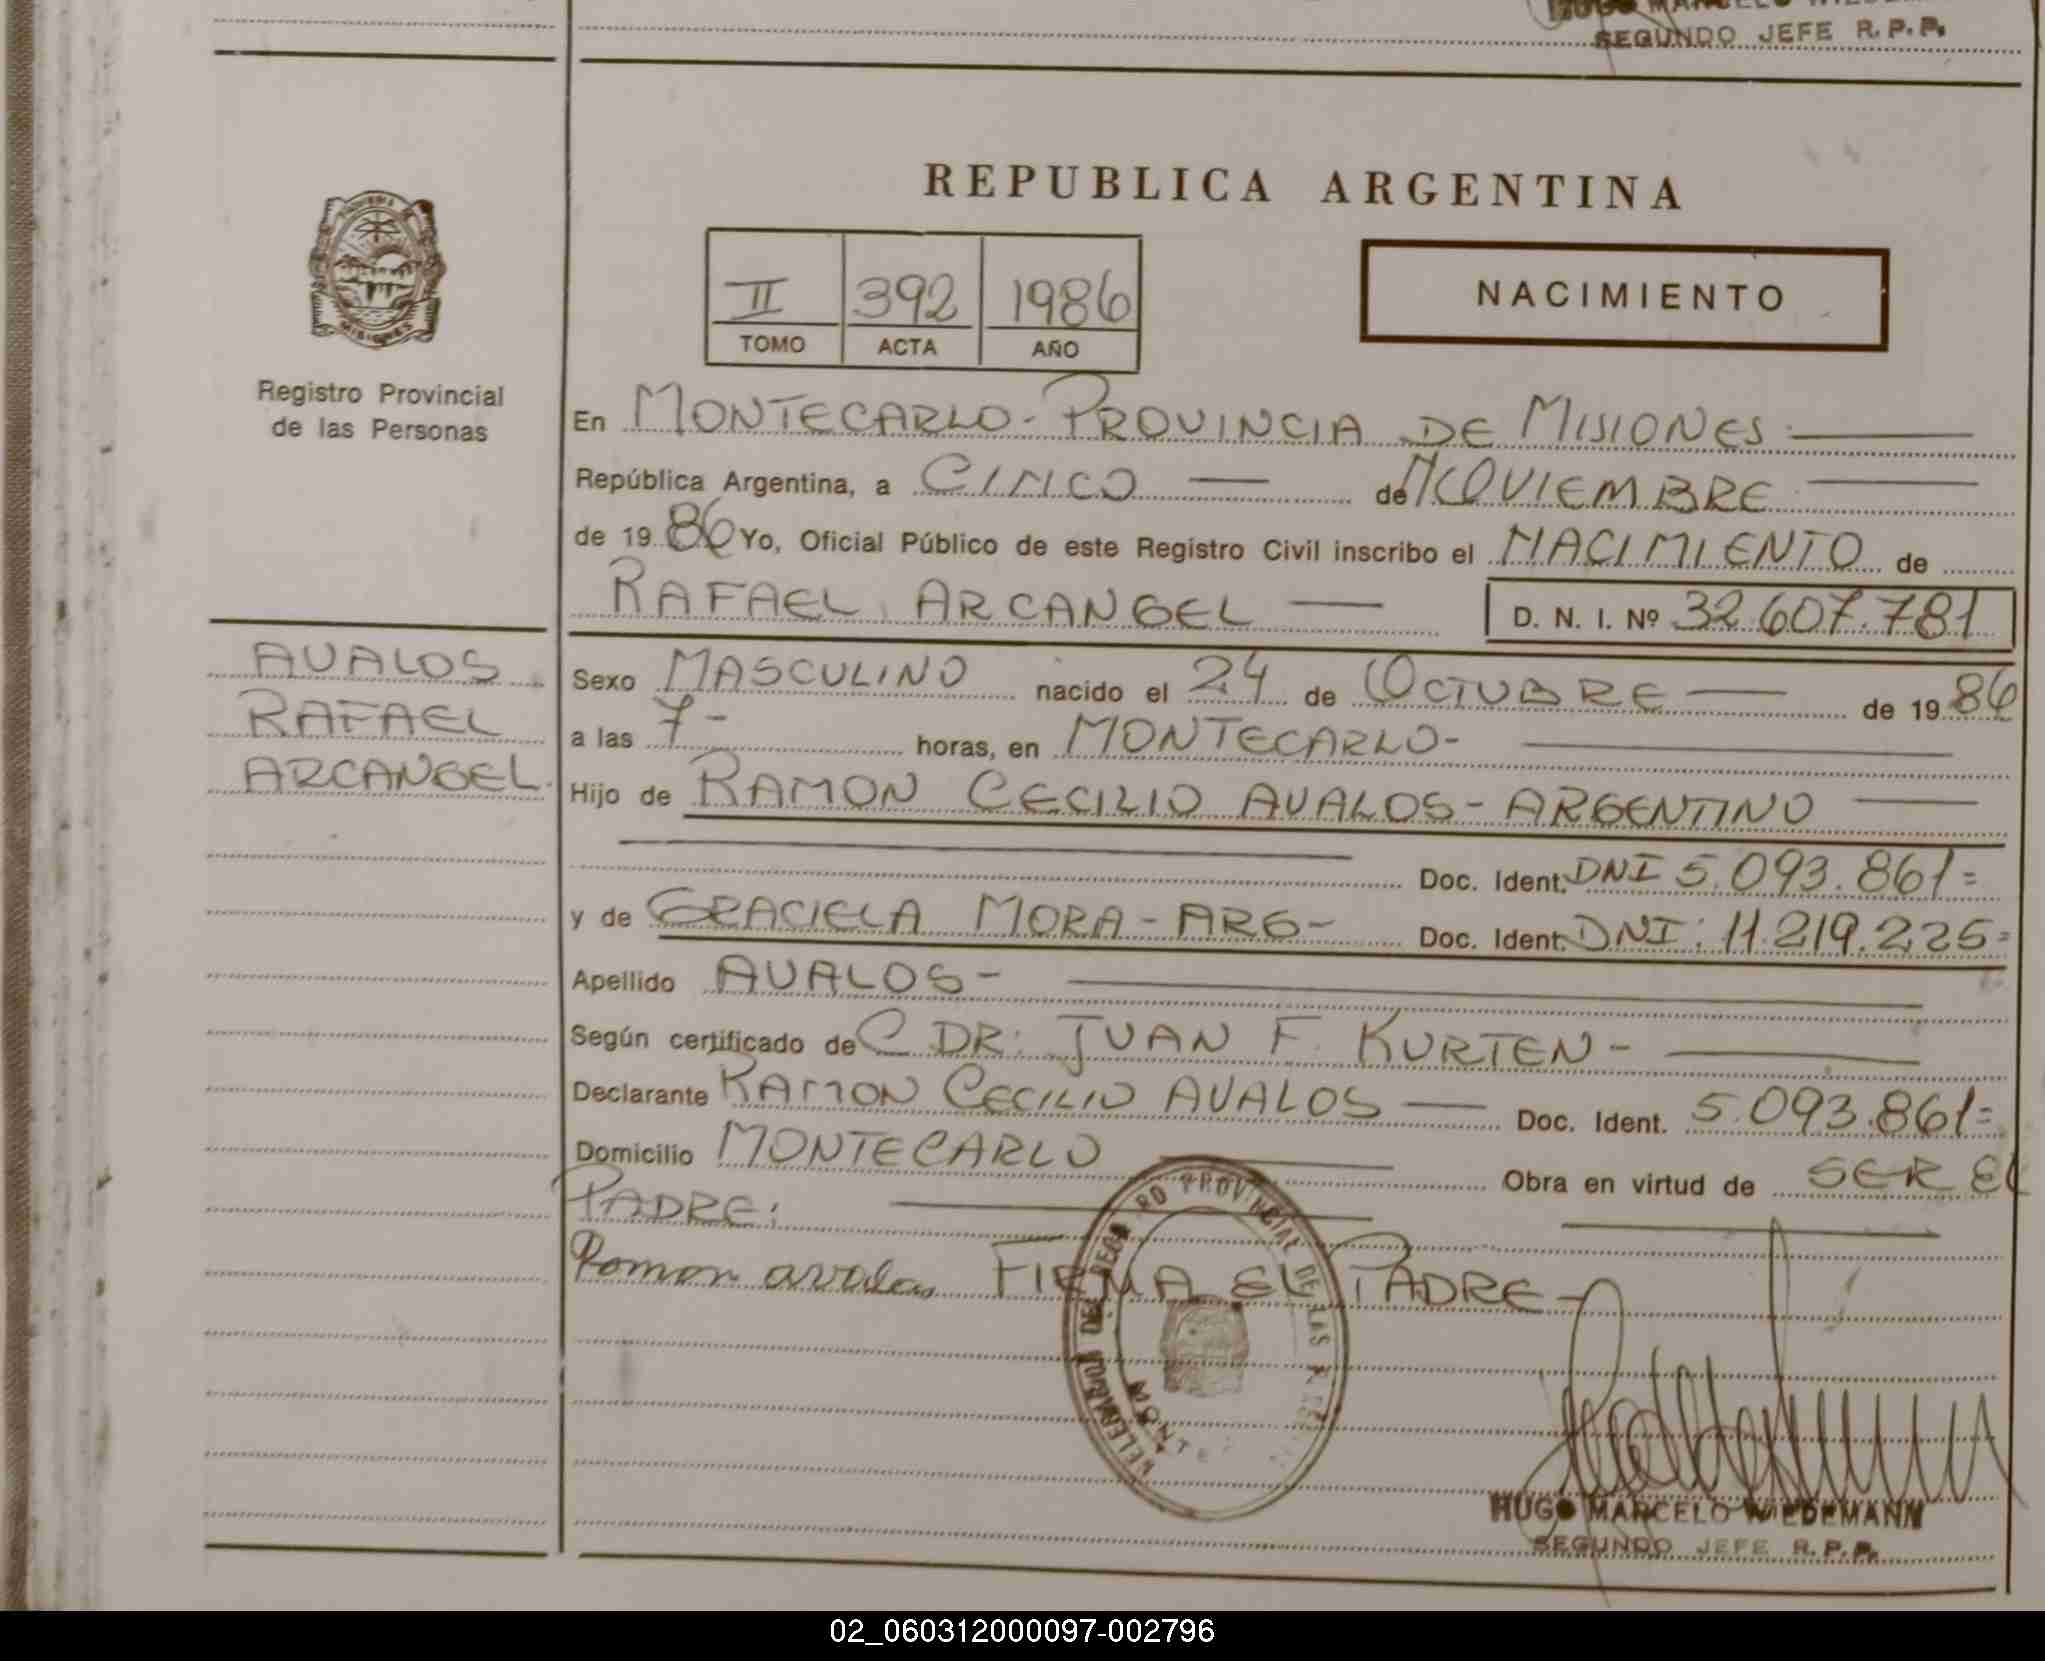 SEGUNDO JEFE R.P.P.
REPUBLICA ARGENTINA
II 392 1986
TOMO ACTA AÑO
NACIMIENTO
MISIONES
Registro Provincial
de las Personas
En MONTECARLO - PROVINCIA DE MISIONES
República Argentina, a CINCO de NOVIEMBRE
de 19 86 Yo, Oficial Público de este Registro Civil inscribo el NACIMIENTO de
RAFAEL ARCANGEL D. N. I. Nº 32.607.781
AVALOS
RAFAEL
ARCANGEL
Sexo MASCULINO nacido el 24 de OCTUBRE de 19 86
a las 7- horas, en MONTECARLO-
Hijo de RAMON CECILIO AVALOS - ARGENTINO
Doc. Ident. DNI 5.093.861=
y de GRACIELA MORA - ARG- Doc. Ident. DNI: 11.219.225=
Apellido AVALOS-
Según certificado de C DR. JUAN F. KURTEN-
Declarante RAMON CECILIO AVALOS Doc. Ident. 5.093.861=
Domicilio MONTECARLO Obra en virtud de SER EL
PADRE:
Ramon avalos FIRMA EL PADRE-
DELEGACION DEL REGISTRO PROVINCIAL DE LAS
HUGO MARCELO WIEDEMANN
SEGUNDO JEFE R.P.P.
02_060312000097-002796